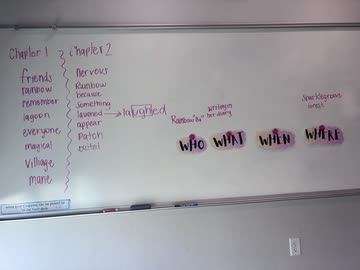 Chapter 1
friends
rainbow
remember
lagoon
everyone
magical
Village
mane
Chapter 2
Nervous
Rainbow
because
something
laughed
appear
Patch
laughed
Rainbow
writing in
her diary
Sparklegrove
forest
WHO
WHAT
WHEN
WHERE